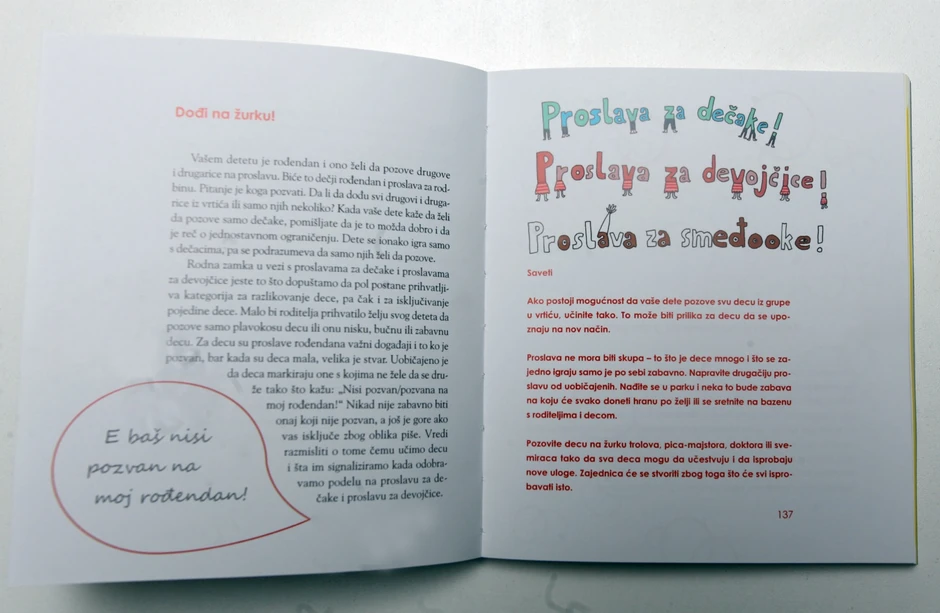 Dođi na žurku!
Vašem detetu je rođendan i ono želi da pozove drugove
i drugarice na proslavu. Biće to dečji rođendan i proslava za rod-
binu. Pitanje je koga pozvati. Da li da dođu svi drugovi i druga-
rice iz vrtića ili samo njih nekoliko? Kada vaše dete kaže da želi
da pozove samo dečake, pomišljate da je to možda dobro i da
je reč o jednostavnom ograničenju. Dete se ionako igra samo
s dečacima, pa se podrazumeva da samo njih želi da pozove.
Rodna zamka u vezi s proslavama za dečake i proslavama
za devojčice jeste to što dopuštamo da pol postane prihvatlji-
va kategorija za razlikovanje dece, pa čak i za isključivanje
pojedine dece. Malo bi roditelja prihvatilo želju svog deteta da
pozove samo plavokosu decu ili onu nisku, bučnu ili zabavnu
decu. Za decu su proslave rođendana važni događaji i to ko je
pozvan, bar kada su deca mala, velika je stvar. Uobičajeno je
da deca markiraju one s kojima ne žele da se dru-
že tako što kažu: „Nisi pozvan/pozvana na
moj rođendan!“ Nikad nije zabavno biti
onaj koji nije pozvan, a još je gore ako
vas isključe zbog oblika piše. Vredi
razmisliti o tome čemu učimo decu
i šta im signaliziramo kada odobra-
vamo podelu na proslavu za de-
čake i proslavu za devojčice.
E baš nisi
pozvan na
moj rođendan!
Proslava za dečake!
Proslava za devojčice!
Proslava za smeđooke!
Saveti
Ako postoji mogućnost da vaše dete pozove svu decu iz grupe
u vrtiću, učinite tako. To može biti prilika za decu da se upo-
znaju na nov način.
Proslava ne mora biti skupa – to što je dece mnogo i što se za-
jedno igraju samo je po sebi zabavno. Napravite drugačiju pro-
slavu od uobičajenih. Nađite se u parku i neka to bude zabava
na koju će svako doneti hranu po želji ili se sretnite na bazenu
s roditeljima i decom.
Pozovite decu na žurku trolova, pica-majstora, doktora ili sve-
miraca tako da sva deca mogu da učestvuju i da isprobaju
nove uloge. Zajednica će se stvoriti zbog toga što će svi ispro-
bavati isto.
137